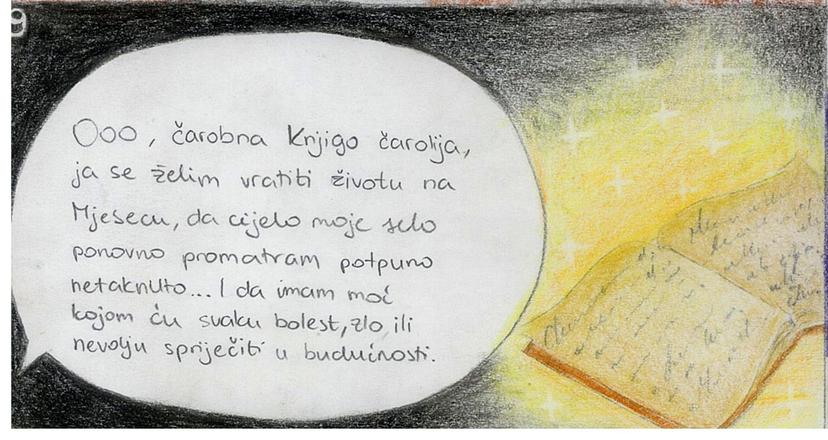 9
Ooo, čarobna Knjigo čarolija,
ja se želim vratiti životu na
Mjesecu, da cijelo moje selo
ponovno promatram potpuno
netaknuto... I da imam moć
kojom ću svaku bolest, zlo, ili
nevolju spriječiti u budućnosti.